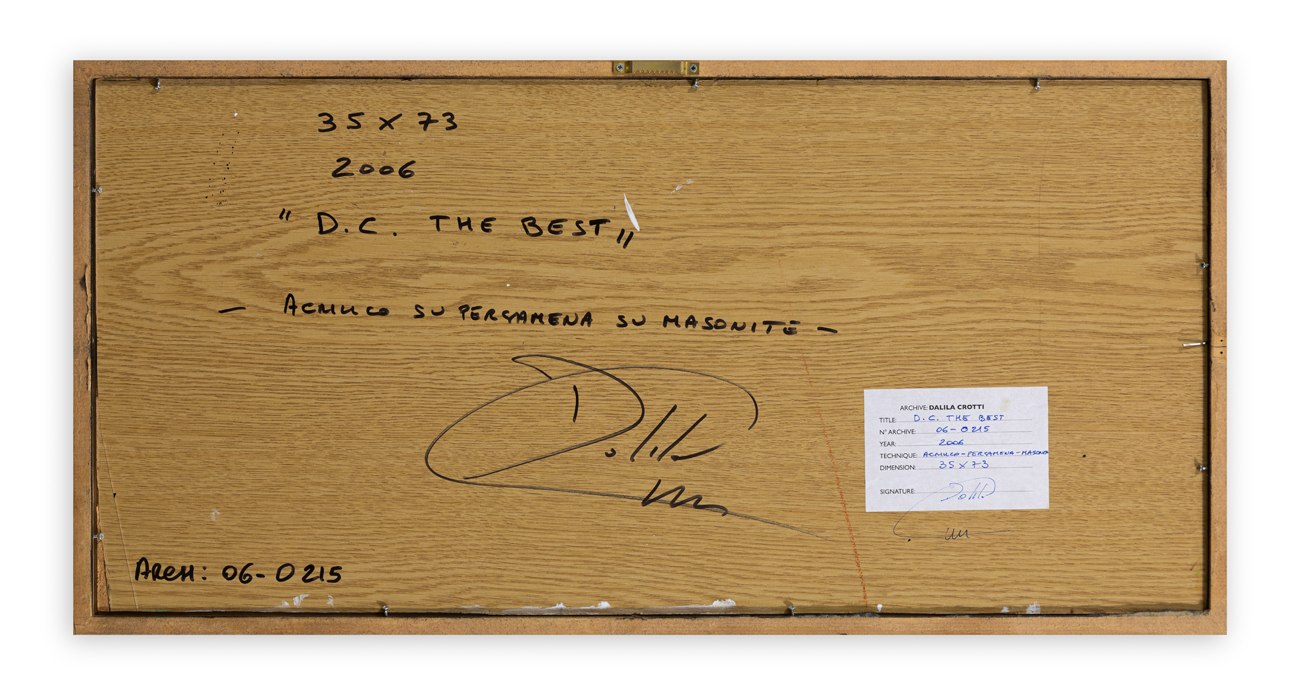 35 x 73
2006
" D.C. THE BEST "
- ACRILICO SU PERGAMENA SU MASONITE -
Dalila
ARCH: 06-0215
ARCHIVE: DALILA CROTTI
TITLE: D.C. THE BEST
N° ARCHIVE: 06-0215
YEAR: 2006
TECHNIQUE: ACRILICO-PERGAMENA-MASONI
DIMENSION: 35 x 73
SIGNATURE: Dalila